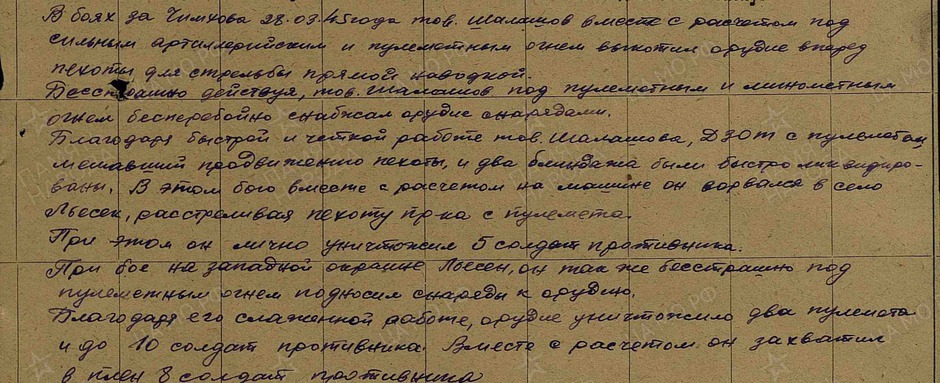 В боях за Чимхова 28.03.45 года тов. Шалашов вместе с расчетом под
сильным артиллерийским и пулеметным огнем выкотил орудие вперед
пехоты для стрельбы прямой наводкой.
Бесстрашно действуя, тов. Шалашов под пулеметным и минометным
огнем бесперебойно снабжал орудие снарядами.
Благодаря быстрой и четкой работе тов. Шалашова, ДЗОТ с пулеметом
мешавший продвижению пехоты, и два блиндажа были быстро ликвидиро-
ваны. В этом бою вместе с расчетом на машине он ворвался в село
Льесек, расстреливая пехоту пр-ка с пулемета.
При этом он лично уничтожил 5 солдат противника.
При бое на западной окраине Льесек, он так же бесстрашно под
пулеметным огнем подносил снаряды к орудию.
Благодаря его слаженной работе, орудие уничтожило два пулемета
и до 10 солдат противника. Вместе с расчетом он захватил
в плен 8 солдат противника